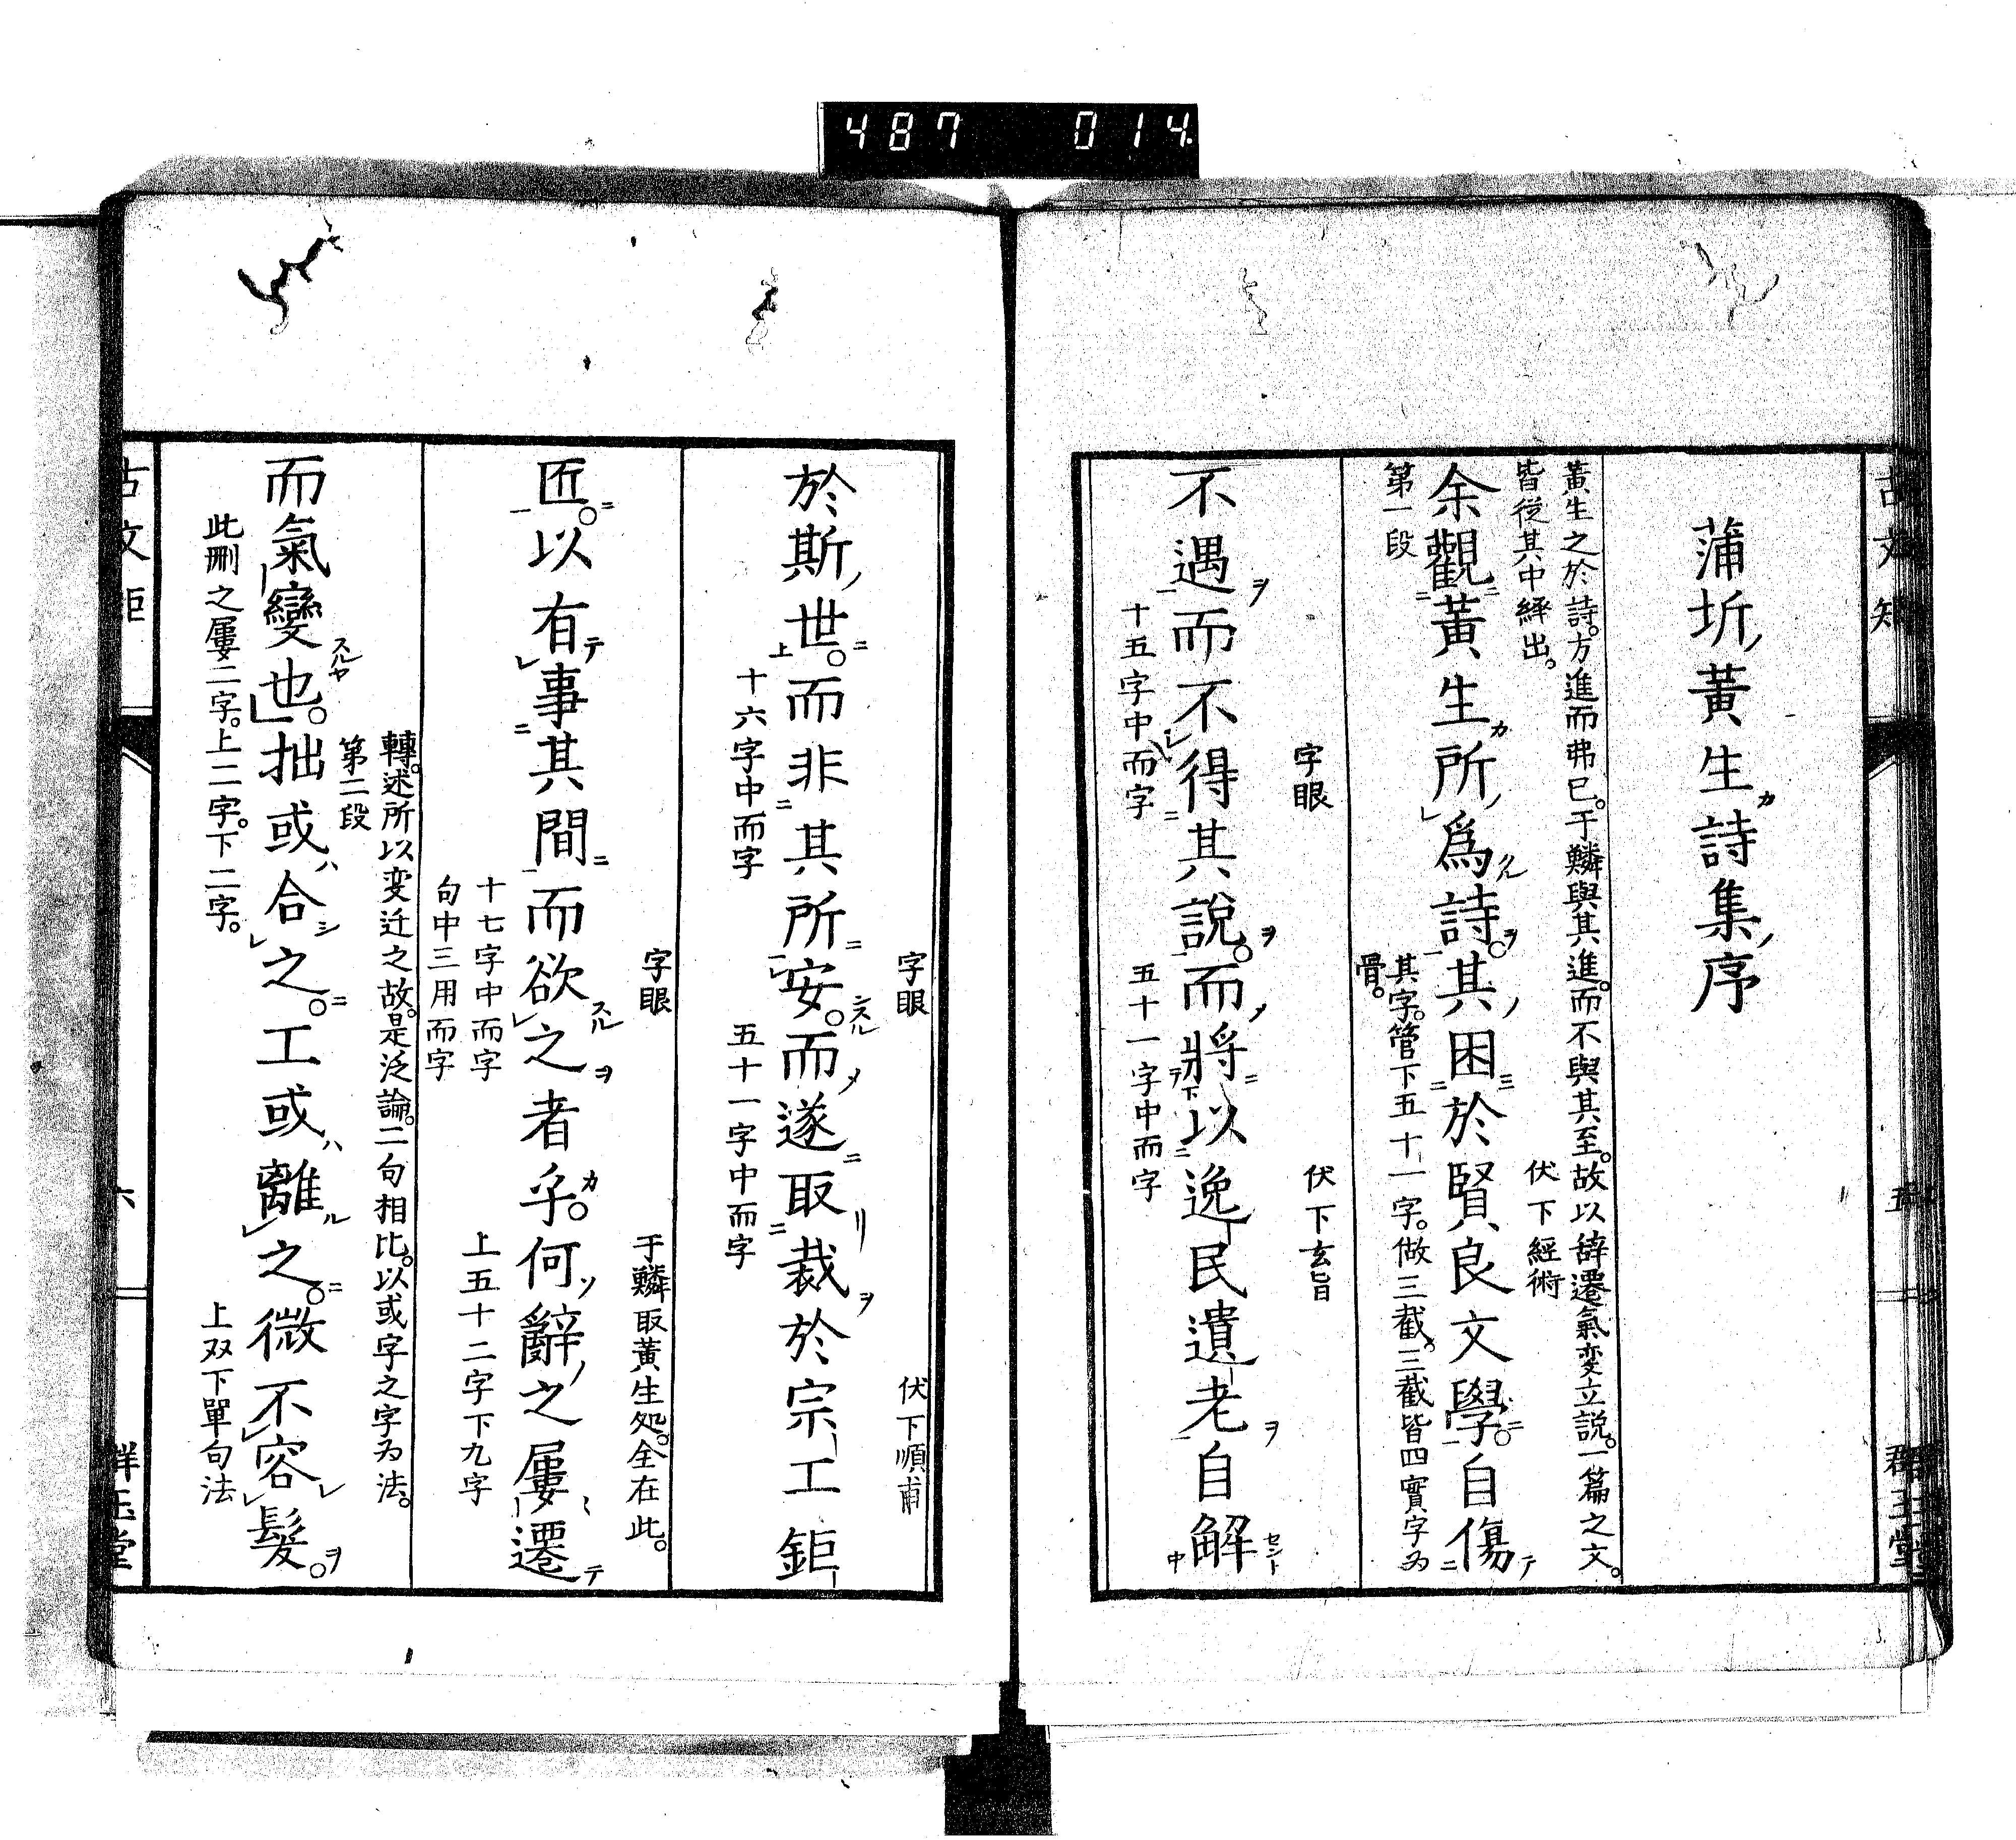 487 014
蒲圻黃生詩集序
黃生之於詩。方進而弗已。于鱗與其進。而不與其至。故以辭遷氣変立説。一篇之文。
皆從其中繹出。
伏下經術
余觀黃生所爲詩。其困於賢良文學。自傷
第一段
其字。管下五十一字。做三截。三截皆四實字为
骨。
字眼
伏下玄旨
不遇而不得其說。而將以逸民遺老自解
十五字中而字
五十一字中而字
字眼
伏下順甫
於斯世。而非其所安。而遂取裁於宗工鉅
十六字中而字
五十一字中而字
字眼
于鱗取黃生処。全在此。
匠。以有事其間而欲之者乎。何辭之屢遷
十七字中而字
句中三用而字
上五十二字下九字
轉。述所以変迁之故。是泛論。二句相比。以或字之字为法。
第二段
而氣變也。拙或合之。工或離之。微不容髮。
此刪之屢二字。上二字。下二字。
上双下單句法
古文矩
六
群玉堂